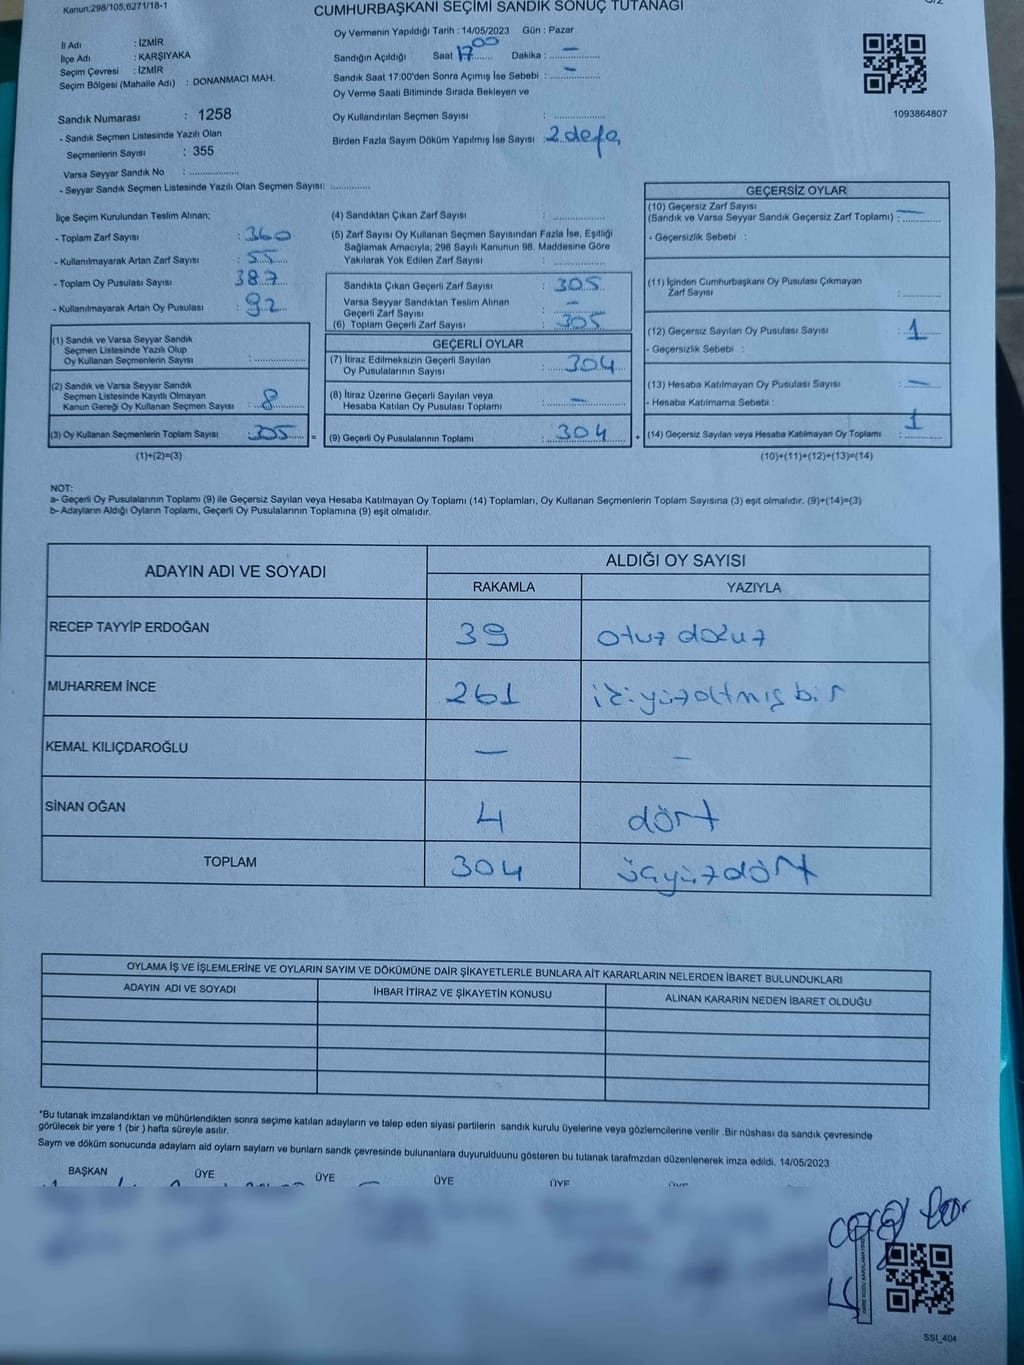 Kanun,298/105;6271/18-1
CUMHURBAŞKANI SEÇİMİ SANDIK SONUÇ TUTANAĞI
İl Adı : İZMİR
İlçe Adı : KARŞIYAKA
Seçim Çevresi : İZMİR
Seçim Bölgesi (Mahalle Adı) : DONANMACI MAH.
Oy Vermenin Yapıldığı Tarih : 14/05/2023 Gün : Pazar
Sandığın Açıldığı Saat 17 00 Dakika : —
Sandık Saat 17:00'den Sonra Açımış İse Sebebi : —
Oy Verme Saati Bitiminde Sırada Bekleyen ve
Oy Kullandırılan Seçmen Sayısı :
Birden Fazla Sayım Döküm Yapılmış İse Sayısı : 2 defa
1093864807
Sandık Numarası : 1258
- Sandık Seçmen Listesinde Yazılı Olan
Seçmenlerin Sayısı : 355
Varsa Seyyar Sandık No :
- Seyyar Sandık Seçmen Listesinde Yazılı Olan Seçmen Sayısı:
İlçe Seçim Kurulundan Teslim Alınan;
- Toplam Zarf Sayısı : 360
- Kullanılmayarak Artan Zarf Sayısı : 55
- Toplam Oy Pusulası Sayısı : 387
- Kullanılmayarak Artan Oy Pusulası : 92
(1) Sandık ve Varsa Seyyar Sandık
Seçmen Listesinde Yazılı Olup
Oy Kullanan Seçmenlerin Sayısı :
(2) Sandık ve Varsa Seyyar Sandık
Seçmen Listesinde Kayıtlı Olmayan
Kanun Gereği Oy Kullanan Seçmen Sayısı : 8
(3) Oy Kullanan Seçmenlerin Toplam Sayısı : 305 =
(1)+(2)=(3)
(4) Sandıktan Çıkan Zarf Sayısı :
(5) Zarf Sayısı Oy Kullanan Seçmen Sayısından Fazla İse, Eşitliği
Sağlamak Amacıyla; 298 Sayılı Kanunun 98. Maddesine Göre
Yakılarak Yok Edilen Zarf Sayısı :
Sandıkta Çıkan Geçerli Zarf Sayısı : 305
Varsa Seyyar Sandıktan Teslim Alınan
Geçerli Zarf Sayısı : —
(6) Toplam Geçerli Zarf Sayısı : 305
GEÇERLİ OYLAR
(7) İtiraz Edilmeksizin Geçerli Sayılan
Oy Pusulalarının Sayısı : 304
(8) İtiraz Üzerine Geçerli Sayılan veya
Hesaba Katılan Oy Pusulası Toplamı : —
(9) Geçerli Oy Pusulalarının Toplamı : 304 +
GEÇERSİZ OYLAR
(10) Geçersiz Zarf Sayısı
(Sandık ve Varsa Seyyar Sandık Geçersiz Zarf Toplamı) : —
- Geçersizlik Sebebi :
(11) İçinden Cumhurbaşkanı Oy Pusulası Çıkmayan
Zarf Sayısı :
(12) Geçersiz Sayılan Oy Pusulası Sayısı : 1
- Geçersizlik Sebebi :
(13) Hesaba Katılmayan Oy Pusulası Sayısı : —
- Hesaba Katılmama Sebebi :
(14) Geçersiz Sayılan veya Hesaba Katılmayan Oy Toplamı : 1
(10)+(11)+(12)+(13)=(14)
NOT:
a- Geçerli Oy Pusulalarının Toplamı (9) ile Geçersiz Sayılan veya Hesaba Katılmayan Oy Toplamı (14) Toplamları, Oy Kullanan Seçmenlerin Toplam Sayısına (3) eşit olmalıdır. (9)+(14)=(3)
b- Adayların Aldığı Oyların Toplamı, Geçerli Oy Pusulalarının Toplamına (9) eşit olmalıdır.
ADAYIN ADI VE SOYADI
ALDIĞI OY SAYISI
RAKAMLA YAZIYLA
RECEP TAYYİP ERDOĞAN 39 otuz dokuz
MUHARREM İNCE 261 ikiyüzaltmış bir
KEMAL KILIÇDAROĞLU — —
SİNAN OĞAN 4 dört
TOPLAM 304 üçyüzdört
OYLAMA İŞ VE İŞLEMLERİNE VE OYLARIN SAYIM VE DÖKÜMÜNE DAİR ŞİKAYETLERLE BUNLARA AİT KARARLARIN NELERDEN İBARET BULUNDUKLARI
ADAYIN ADI VE SOYADI İHBAR İTİRAZ VE ŞİKAYETİN KONUSU ALINAN KARARIN NEDEN İBARET OLDUĞU
*Bu tutanak imzalandıktan ve mühürlendikten sonra seçime katılan adayların ve talep eden siyasi partilerin sandık kurulu üyelerine veya gözlemcilerine verilir .Bir nüshası da sandık çevresinde
görülecek bir yere 1 (bir ) hafta süreyle asılır.
Sayım ve döküm sonucunda adayların ald oyların sayların ve bunların sandk çevresinde bulunanlara duyurulduunu gösteren bu tutanak tarafmzdan düzenlenerek imza edildi. 14/05/2023
BAŞKAN ÜYE ÜYE ÜYE ÜYE ÜYE
SSI_404